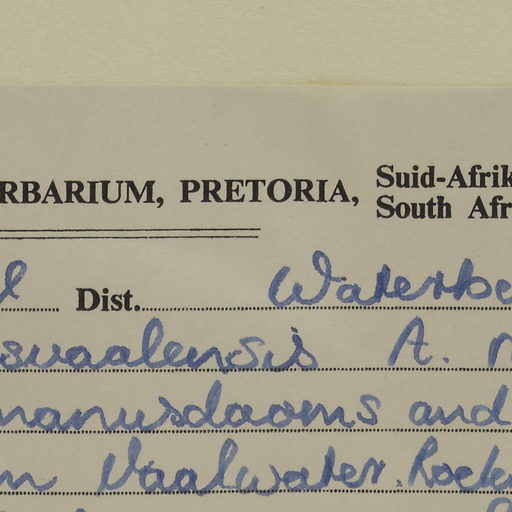 RBARIUM, PRETORIA, Suid-Afrik
South Afr
l Dist. Waterbe
svaalensis A. M
manusdooms and
m Vaalwater. Rock